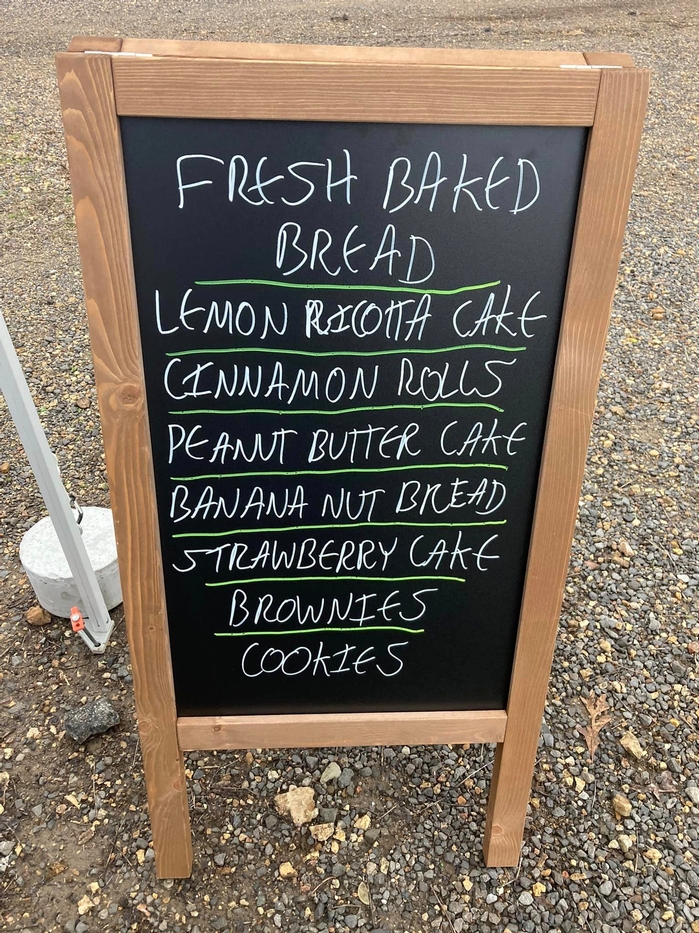 FRESH BAKED
BREAD
LEMON RICOTTA CAKE
CINNAMON ROLLS
PEANUT BUTTER CAKE
BANANA NUT BREAD
STRAWBERRY CAKE
BROWNIES
COOKIES